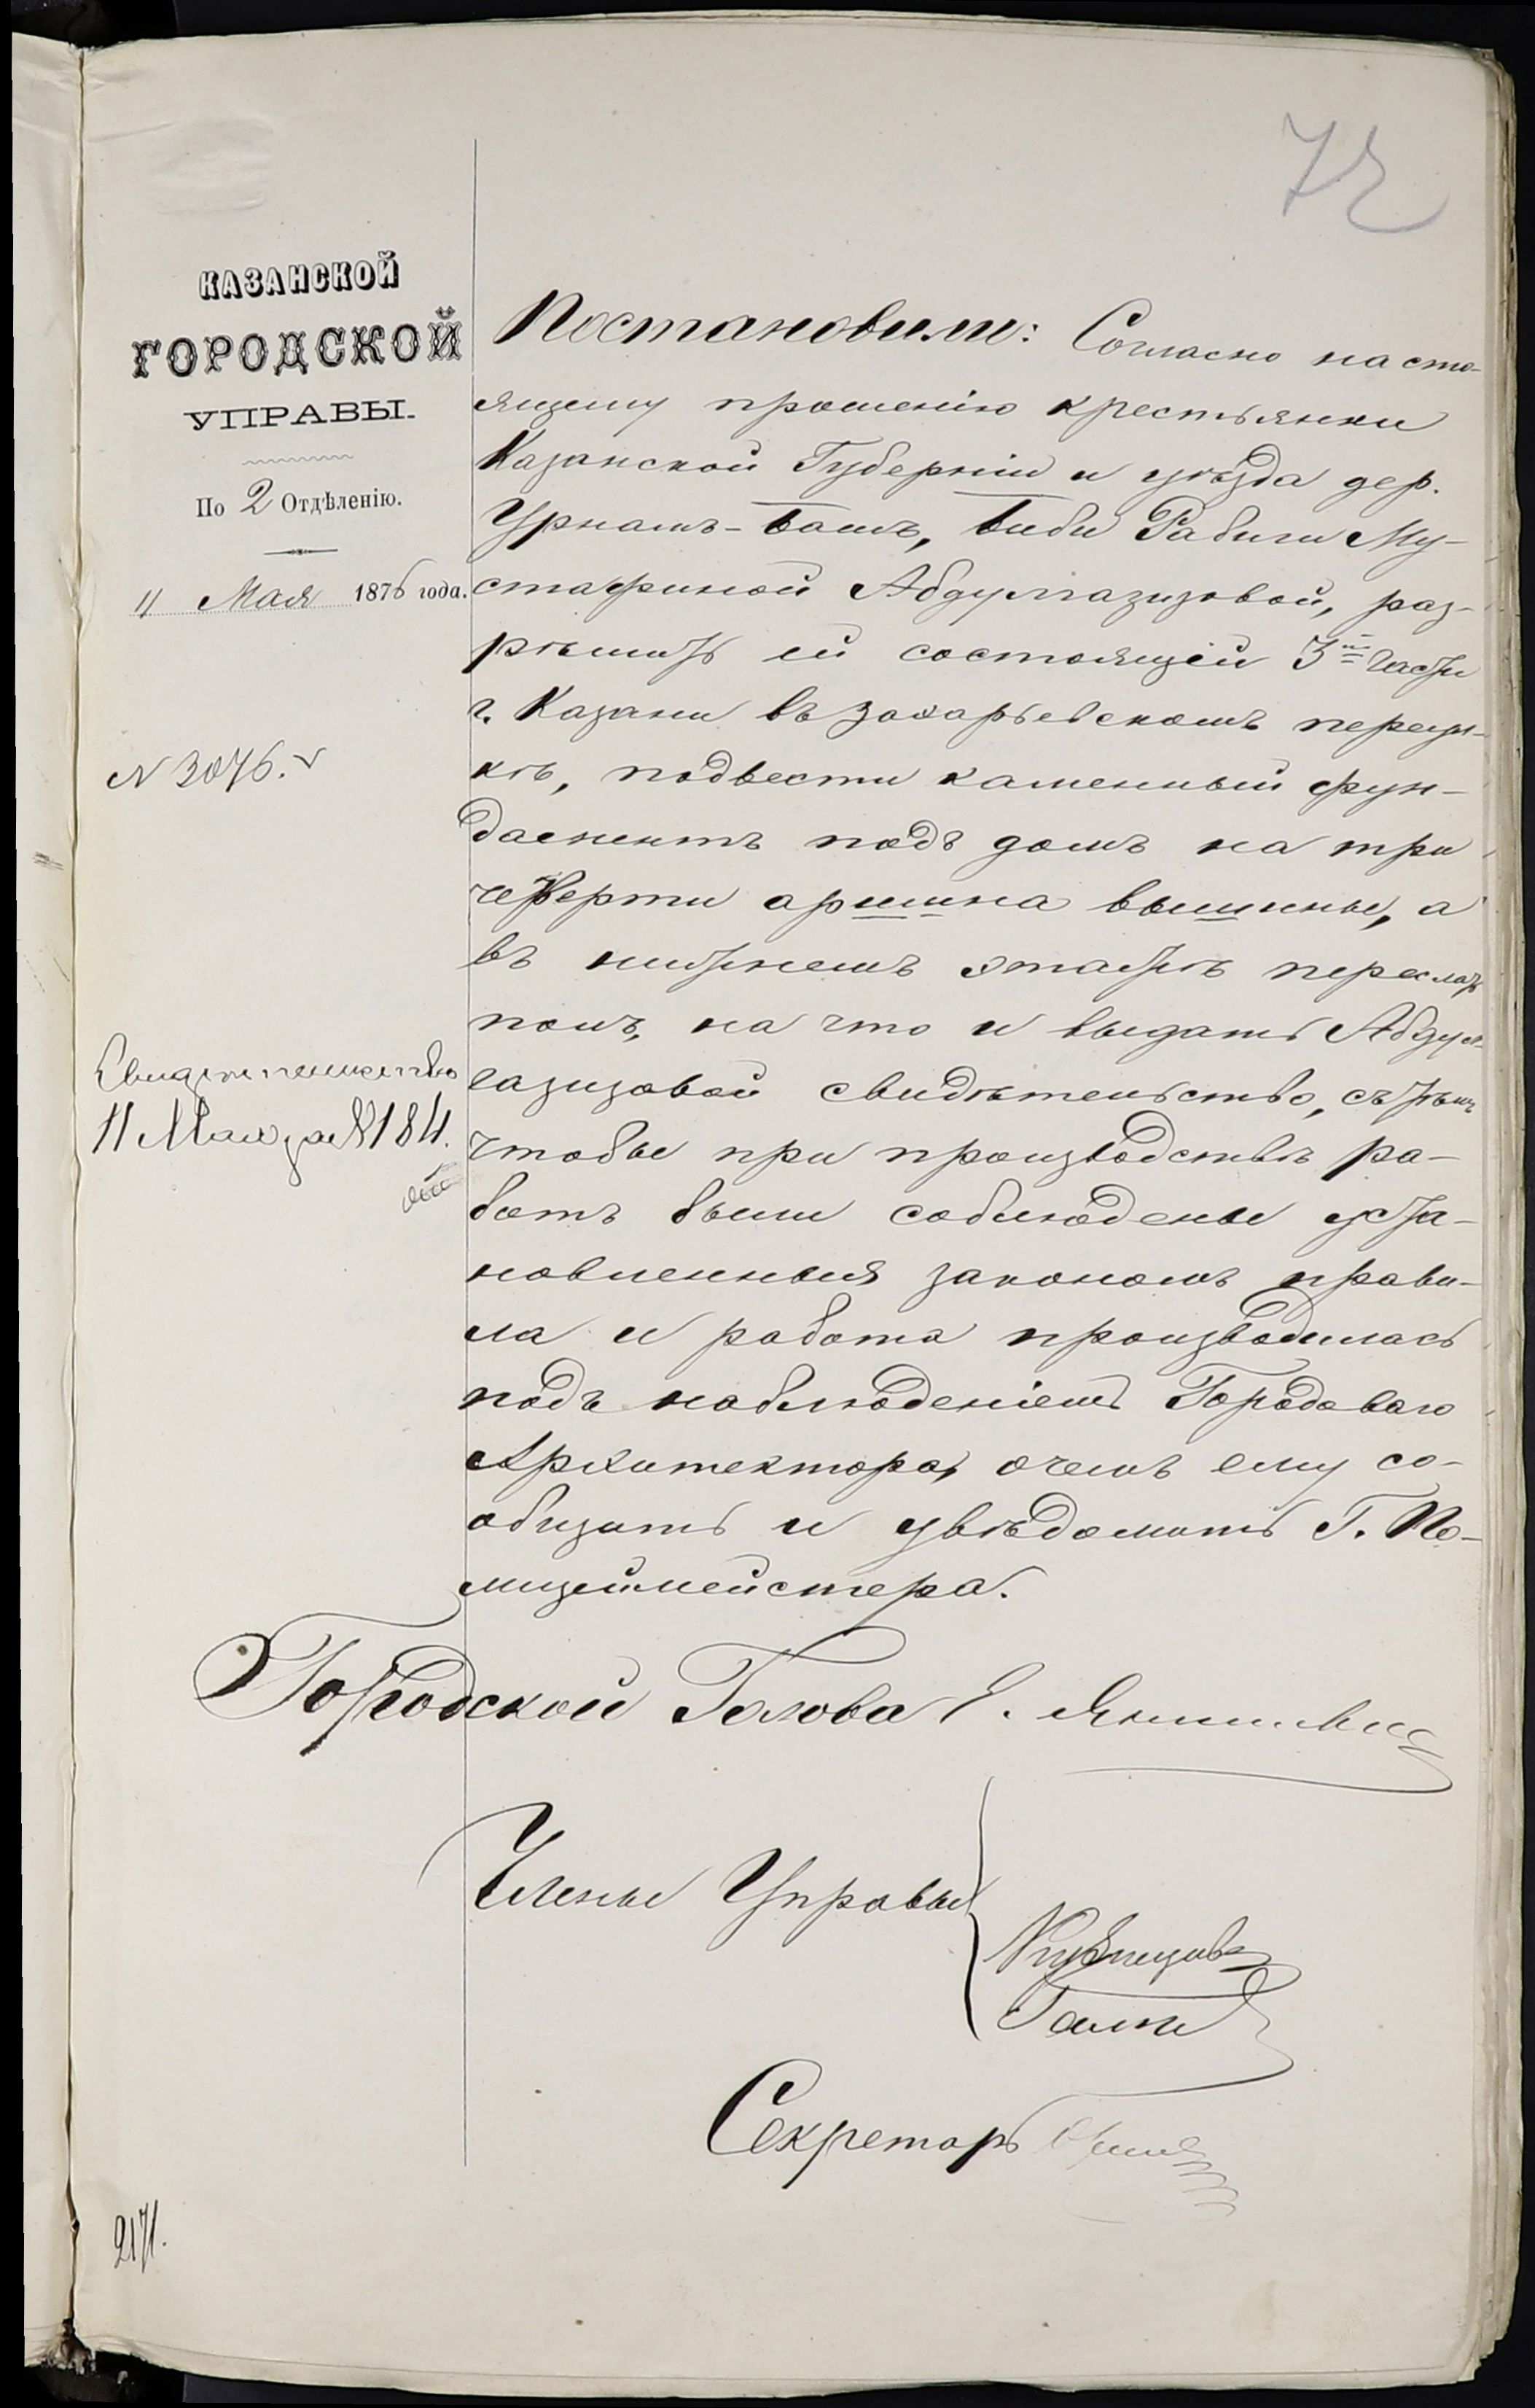 72
КАЗАНСКОЙ
ГОРОДСКОЙ
УПРАВЫ.
По 2 Отдѣленію.
11 Мая 1876 года.
N 3076.
Свидѣтельство
11 Мая за N 184.
Постановили: Согласно насто-
ящему прошенію крестьянки
Казанской Губерніи и уѣзда дер.
Урнашъ-Башъ, Биби Рабиги Му-
стафиной Абдулгазизовой, раз-
рѣшить ей состоящей 3й части
г. Казани въ Захарьевскомъ переул-
кѣ, подвести каменный фун-
даментъ подъ домъ на три
четверти аршина вышины, а
въ нижнемъ этажѣ переслать
полъ, на что и выдать Абдул-
газизовой свидѣтельство, съ тѣмъ
чтобы при производствѣ ра-
ботъ были соблюдены уста-
новленныя закономъ прави-
ла и работа производилась
подъ наблюденіемъ Городоваго
Архитектора, очемъ ему со-
общить и увѣдомить Г. По-
лицеймейстера.
Городской Голова Э. Янишевскій
Члены Управы
Кузнецовъ
Галкин
Секретарь
2171.